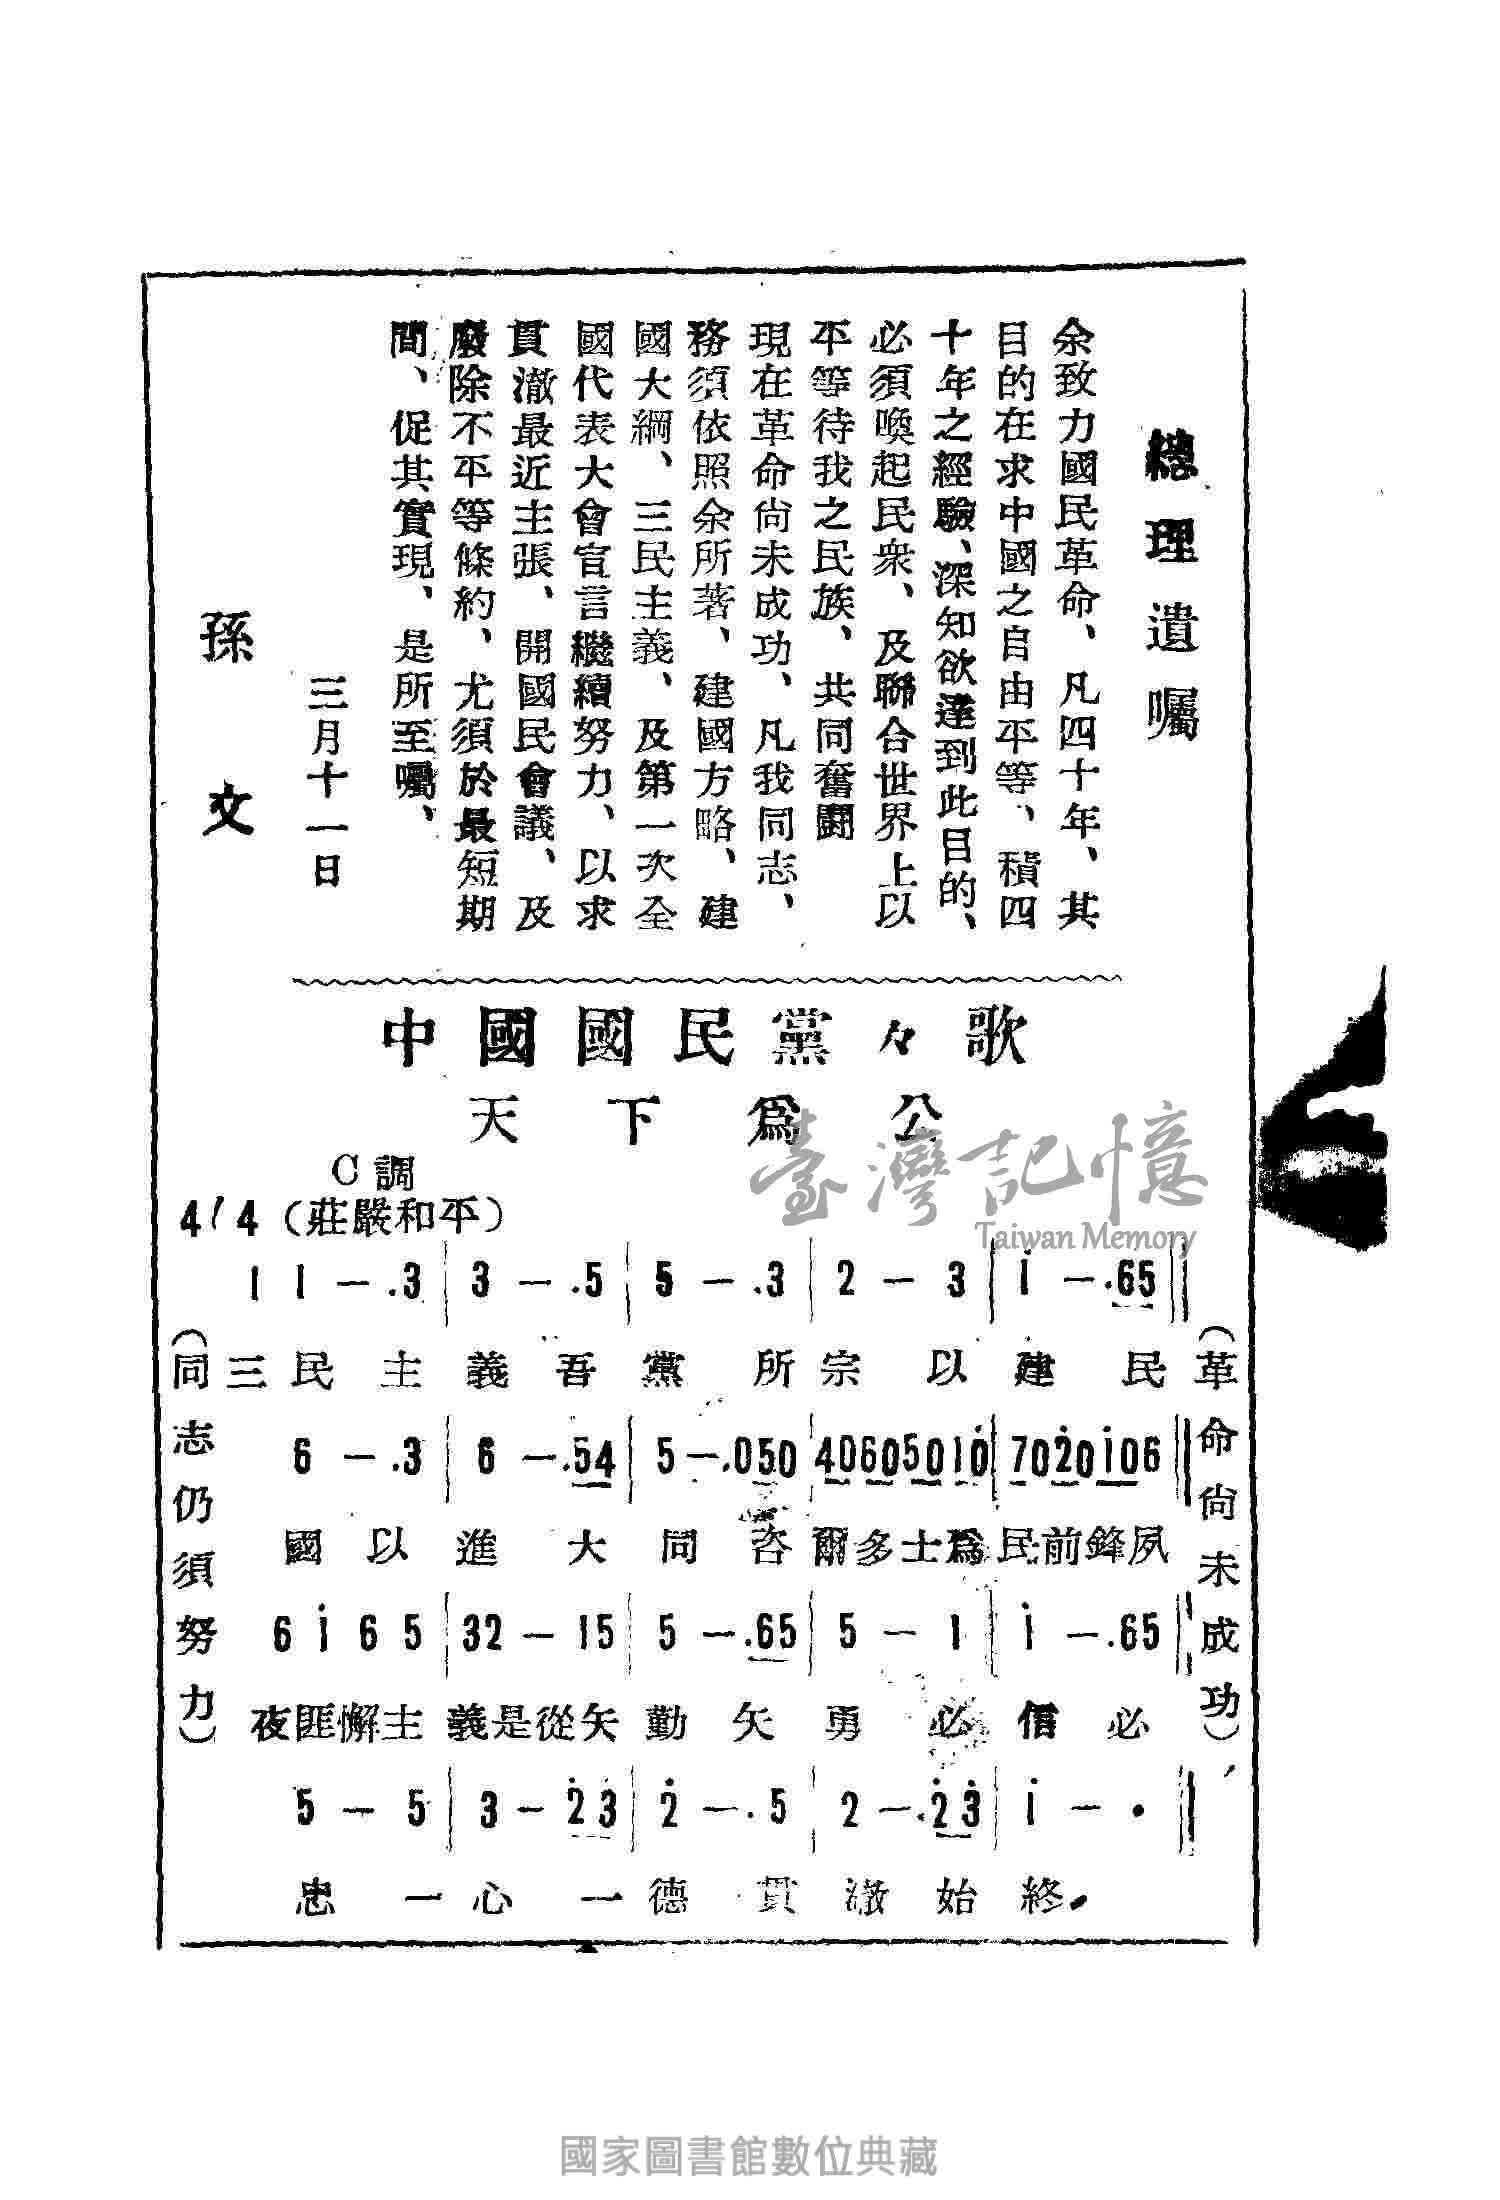 總理遺囑
余致力國民革命、凡四十年、其
目的在求中國之自由平等、積四
十年之經驗、深知欲達到此目的、
必須喚起民衆、及聯合世界上以
平等待我之民族、共同奮鬭
現在革命尙未成功、凡我同志、
務須依照余所著、建國方略、建
國大綱、三民主義、及第一次全
國代表大會宣言繼續努力、以求
貫澈最近主張、開國民會議、及
廢除不平等條約、尤須於最短期
間、促其實現、是所至囑、
三月十一日
孫文
中國國民黨々歌
天下爲公
C調
4/4（莊嚴和平）
1 1 — .3 | 3 — .5 | 5 — .3 | 2 — 3 | i — .65 ||
三民主義吾黨所宗以建民
6 — .3 | 6 — .54 | 5 — .050 | 40605010 | 7020106 ||
國以進大同咨爾多士爲民前鋒夙
6 i 6 5 | 32 — 15 | 5 — .65 | 5 — 1 | i — .65 ||
夜匪懈主義是從矢勤矢勇必信必
5 — 5 | 3 — 23 | 2 — .5 | 2 — .23 | i — • ||
忠一心一德貫澈始終.
（革命尙未成功）
（同志仍須努力）
臺灣記憶
Taiwan Memory
國家圖書館數位典藏